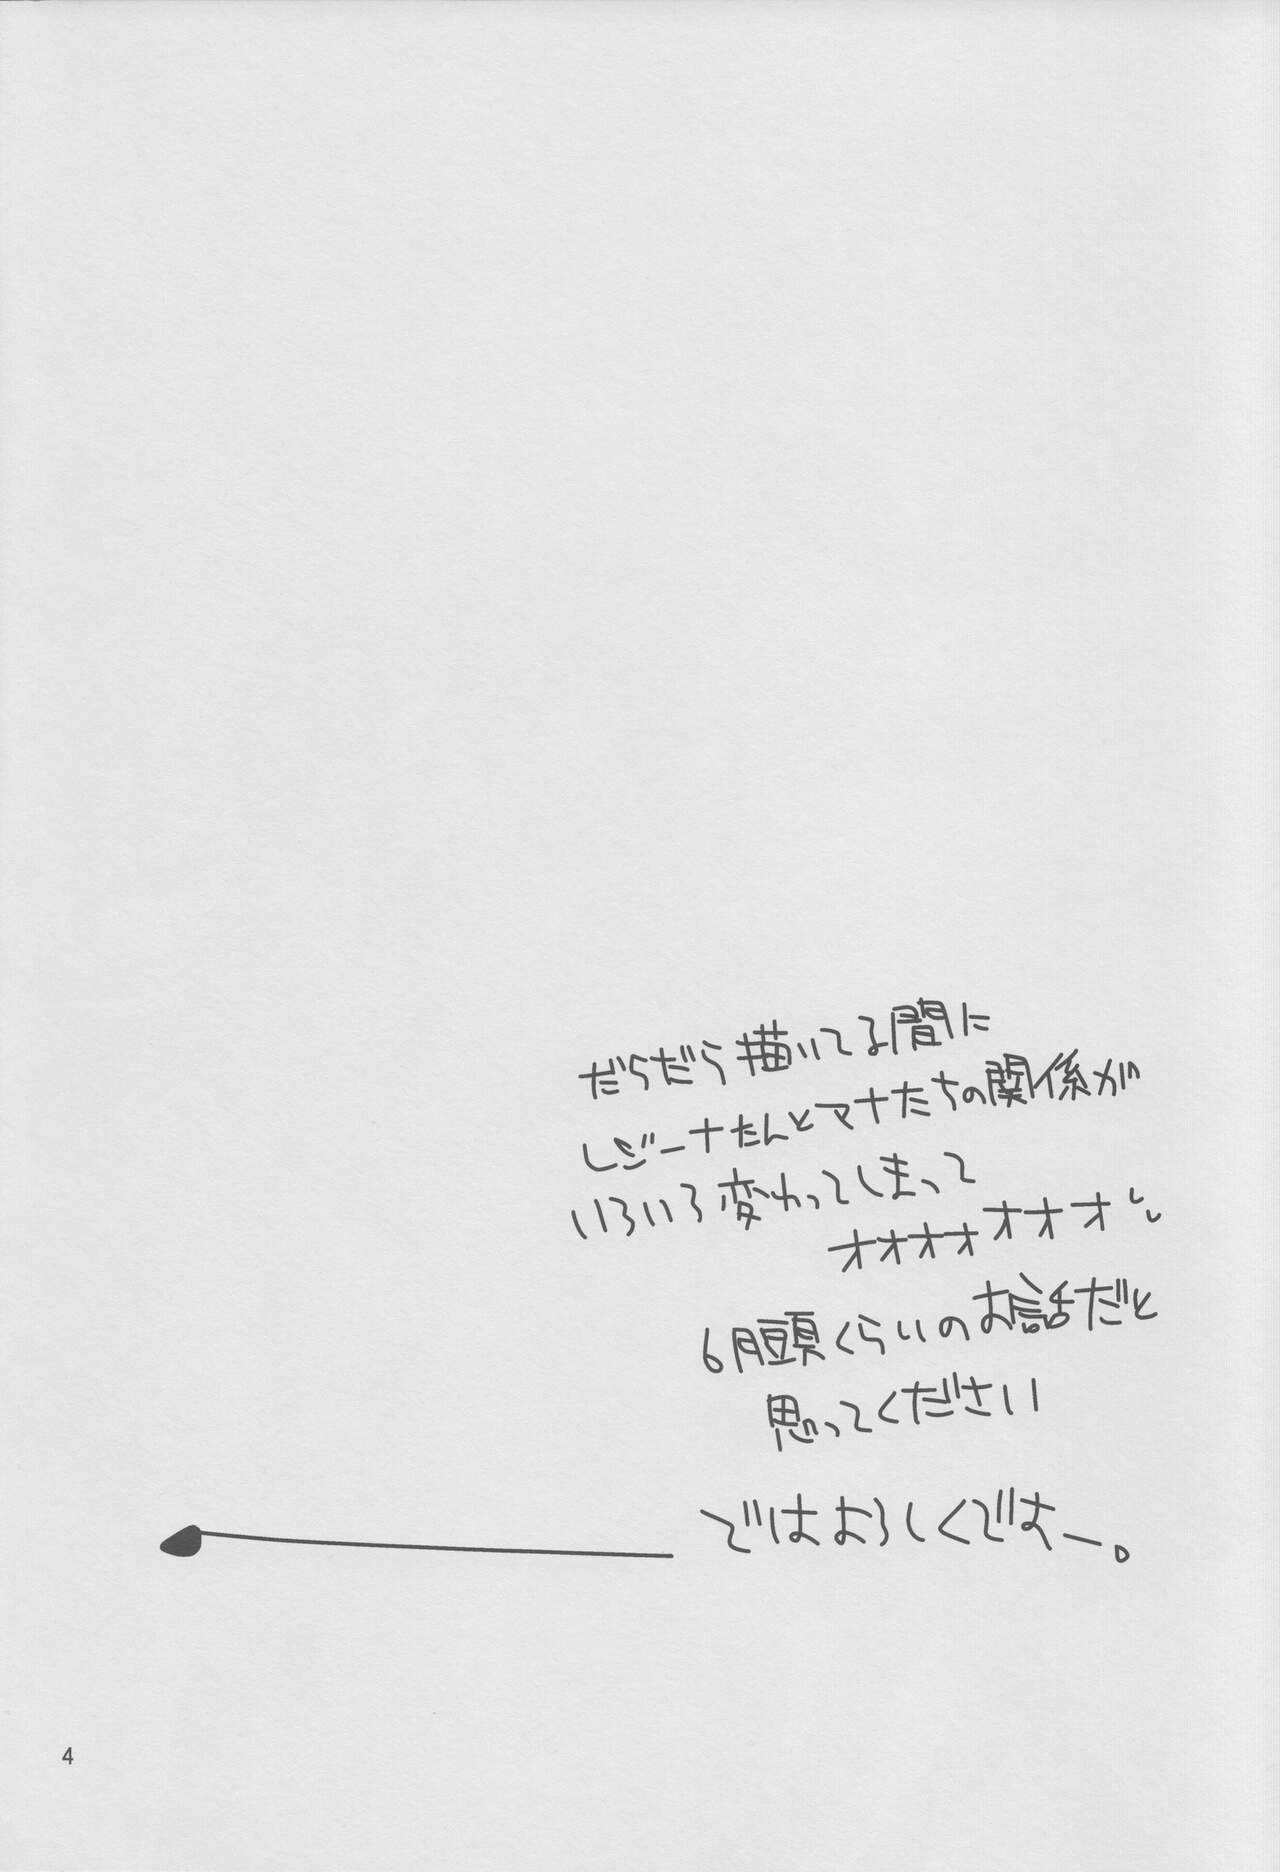 だらだら描いてる間に
レジーナたんとマナたちの関係が
いろいろ変わってしまって
オオオオオオオ
6月頭くらいのお話だと
思ってください
ではよろしくですよー。
4